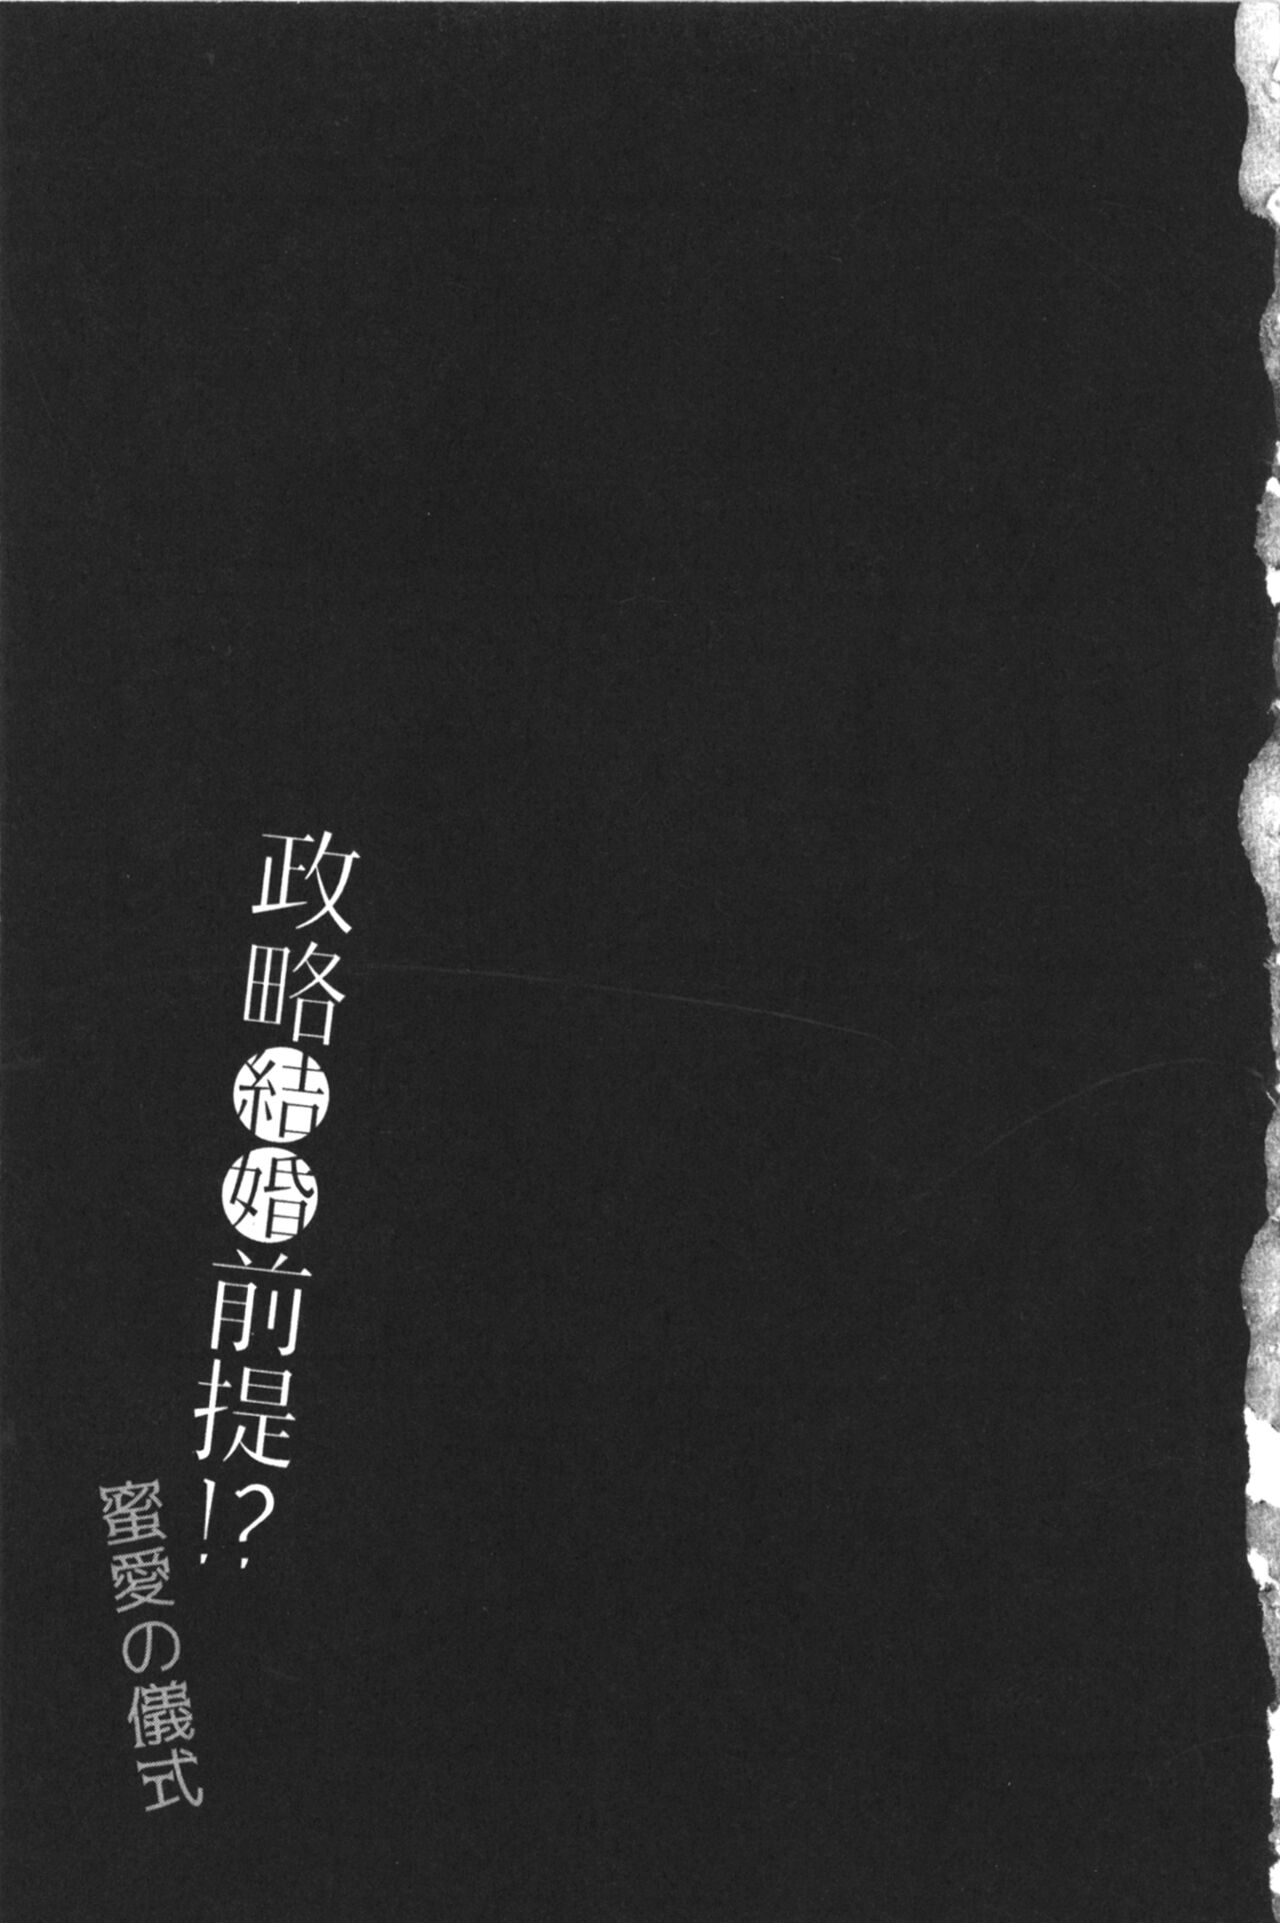 政略結婚前提!?
蜜愛の儀式